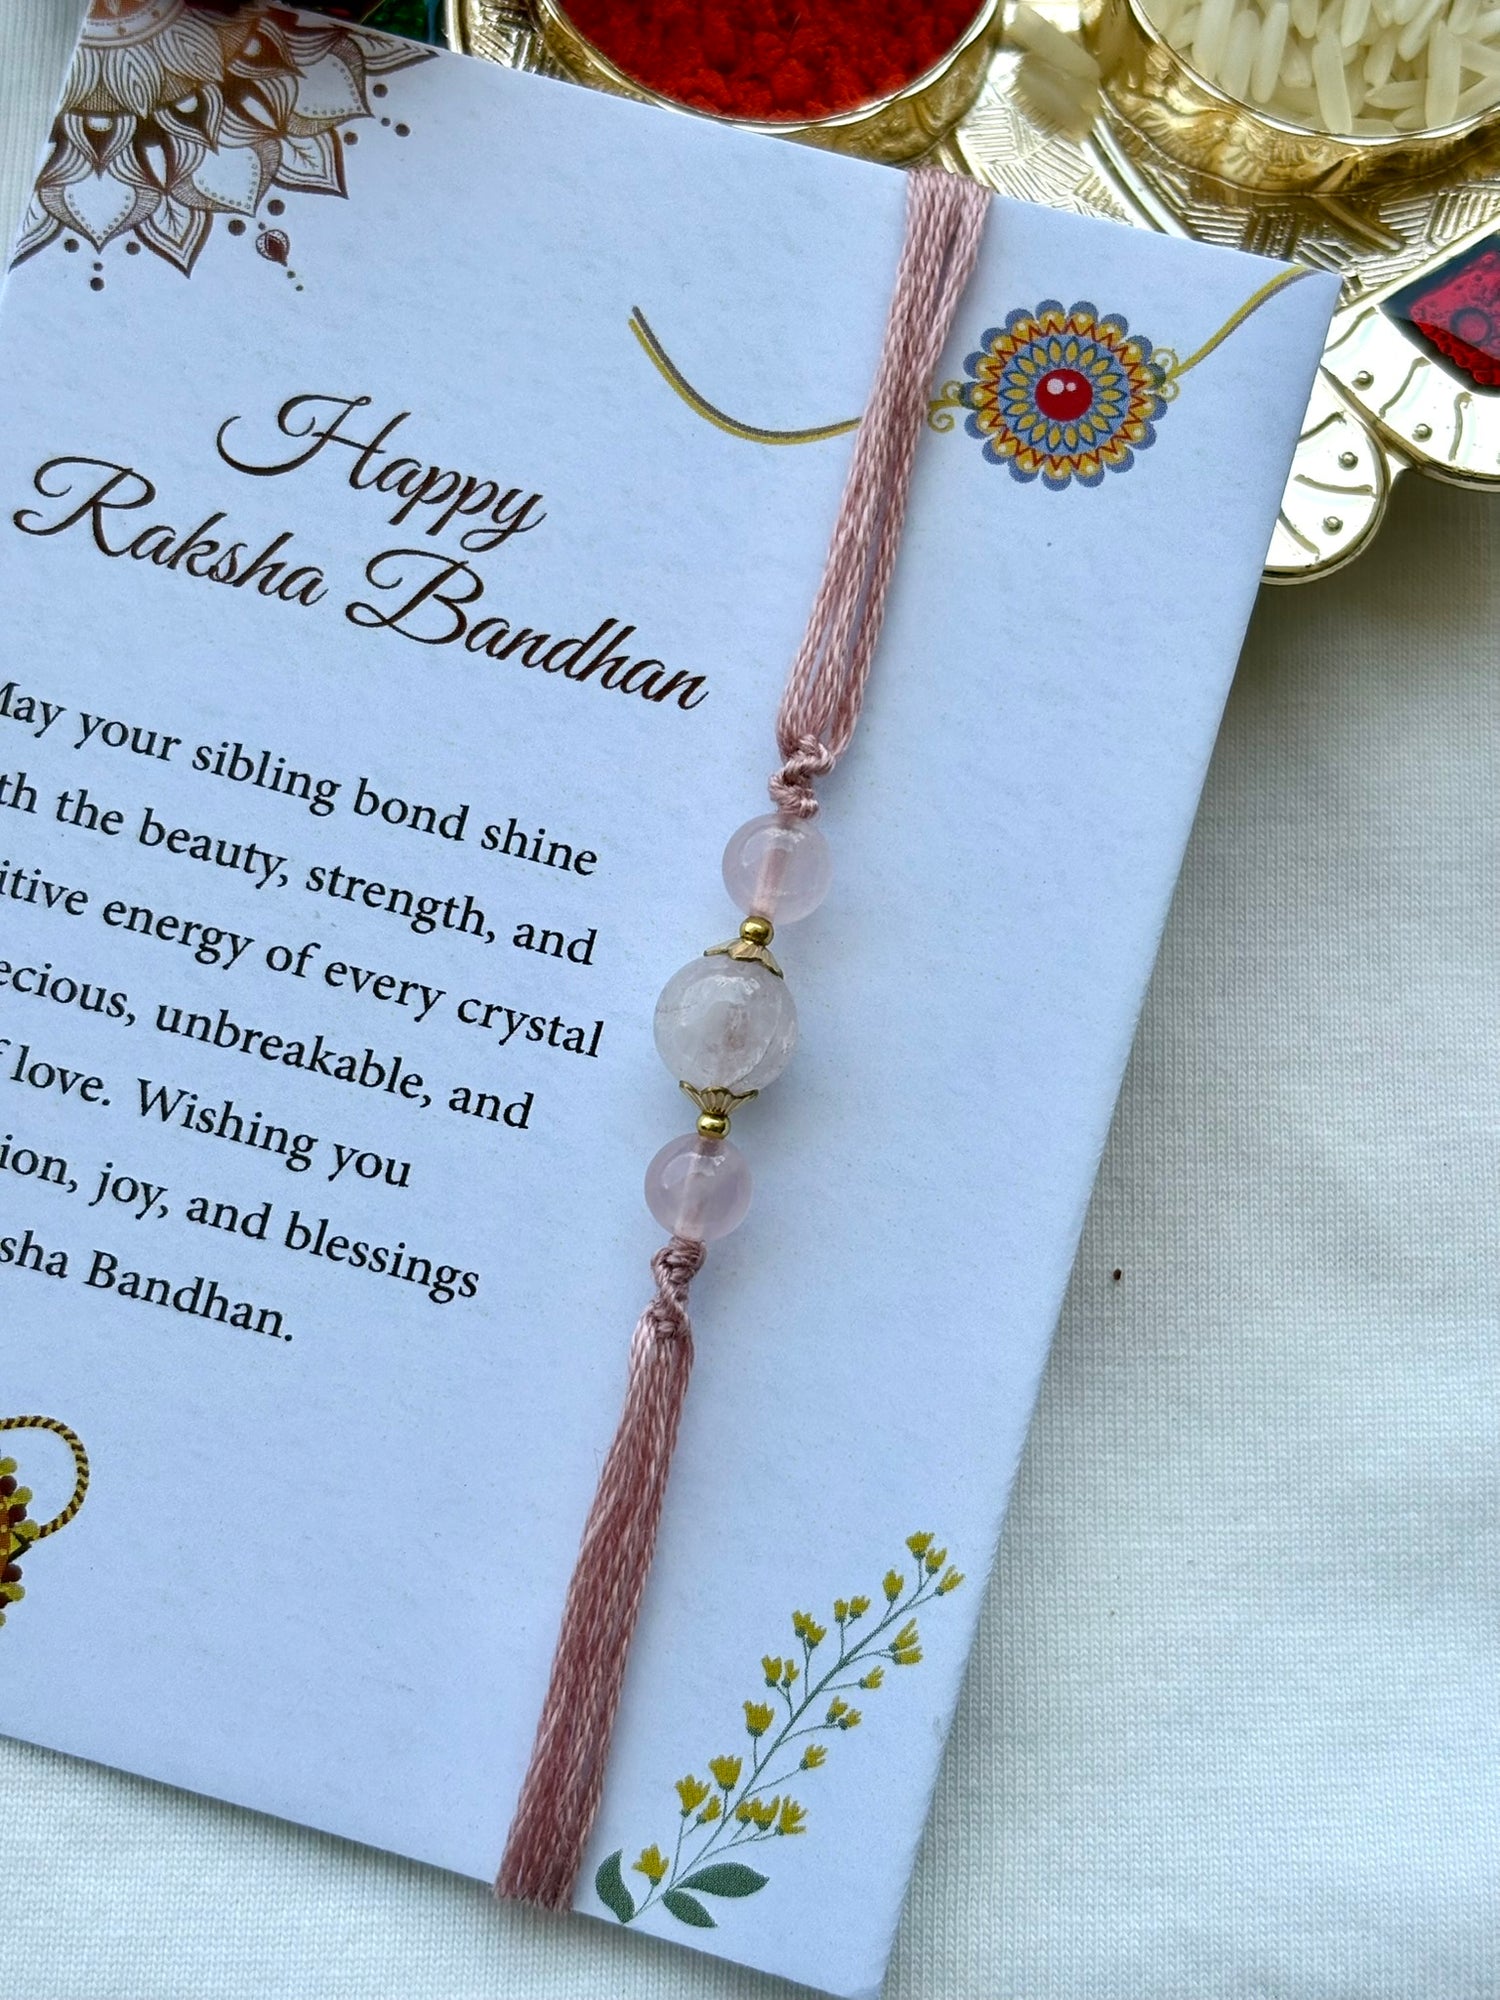 Happy
Raksha Bandhan
May your sibling bond shine
the beauty, strength, and
energy of every crystal
unbreakable, and
love. Wishing you
joy, and blessings
Bandhan.